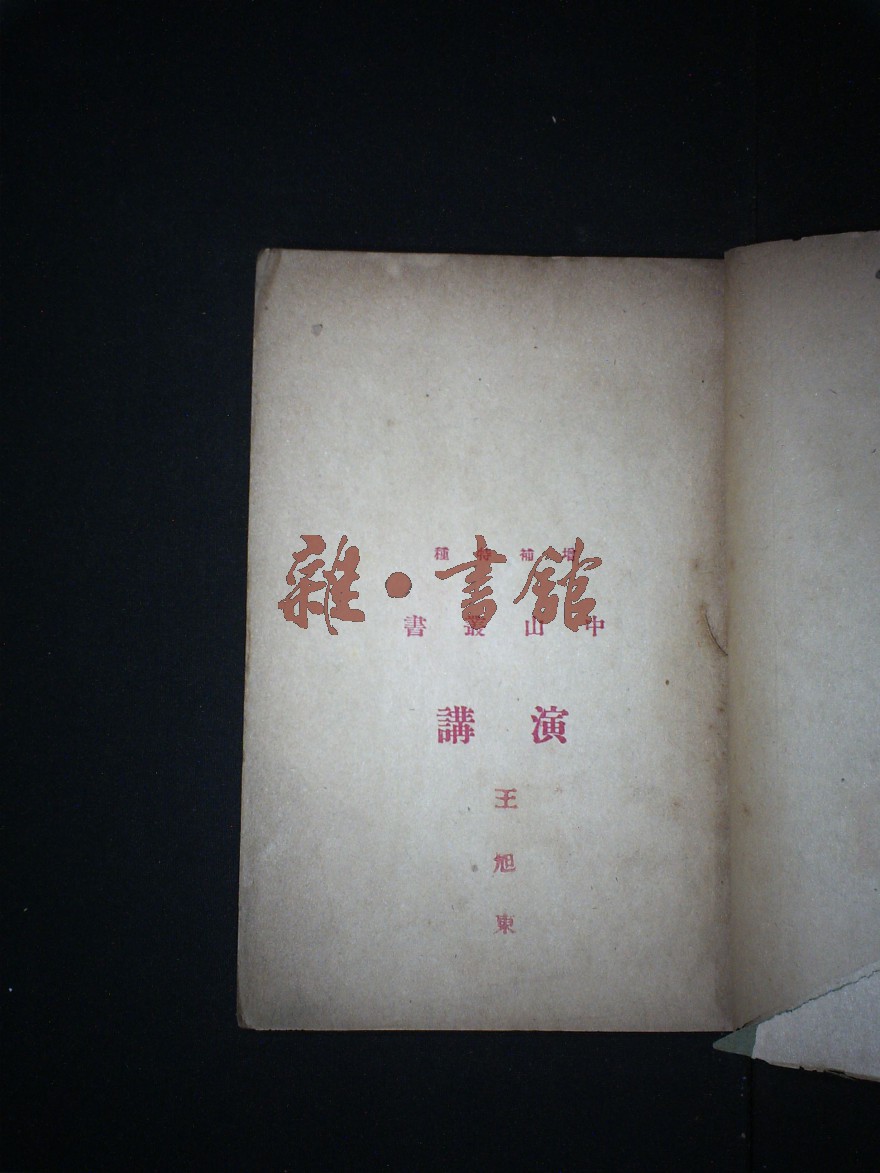 增補特種
雜·書館
中山叢書
演講
王旭東